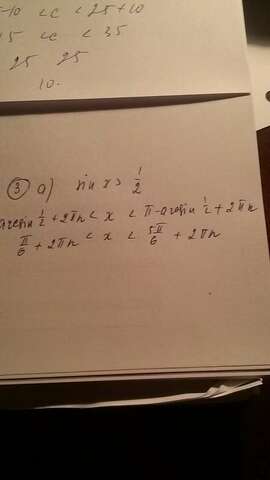 -10 < c < 25+10
15 < c < 35
25 25
10.
③ a) sin x > 1/2
arcsin 1/2 + 2πn < x < π - arcsin 1/2 + 2πn
π/6 + 2πn < x < 5π/6 + 2πn